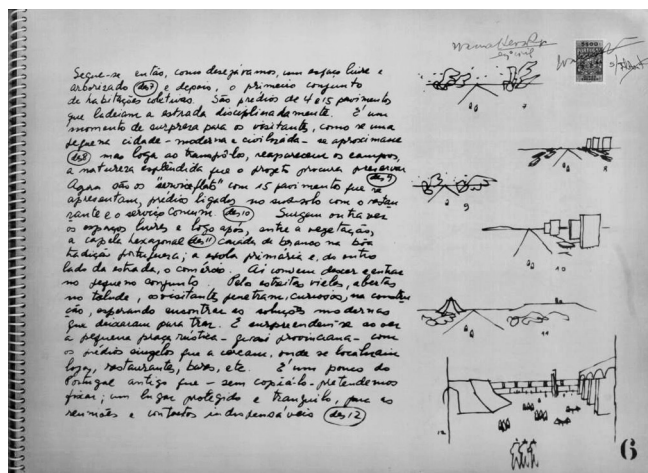 Segue-se então, como desejávamos, um espaço livre e
arborizado (des 7) e depois, o primeiro conjunto
de habitações coletivas. São prédios de 4 e 15 pavimentos
que ladeiam a estrada disciplinadamente. É um
momento de surpreza para os visitantes, como se uma
pequena cidade - moderna e civilizada - se aproximasse
(des 8) mas logo ao transpô-los, reaparecem os campos,
a natureza esplêndida que o projeto procura preservar
(des 9)
Agora são os "service flats" com 15 pavimentos que se
apresentam, prédios ligados no subsolo com o restau
rante e o serviço comum. (des 10) Surgem outra vez
os espaços livres e logo após, entre a vegetação,
a capela hexagonal (des 11) caiada de branco na bôa
tradição portuguesa; a escola primaria e, do outro
lado da estrada, o comércio. Ai convem descer e entrar
no pequeno conjunto. Pelas estreitas vielas, abertas
no talude, os visitantes penetram, curiosos, na constru
ção, esperando encontrar as soluções modernas
que deixaram para traz. E surpreendem-se ao ver
a pequena praça rústica - quasi provinciana - com
os prédios singelos que a cercam, onde se localizam
lojas, restaurante, bares, etc. É um pouco do
Portugal antigo que - sem copiá-lo - pretendemos
fixar; um lugar protegido e tranquilo, para as
reuniões e contactos indispensáveis (des 12)
7
8
9
10
11
12
6